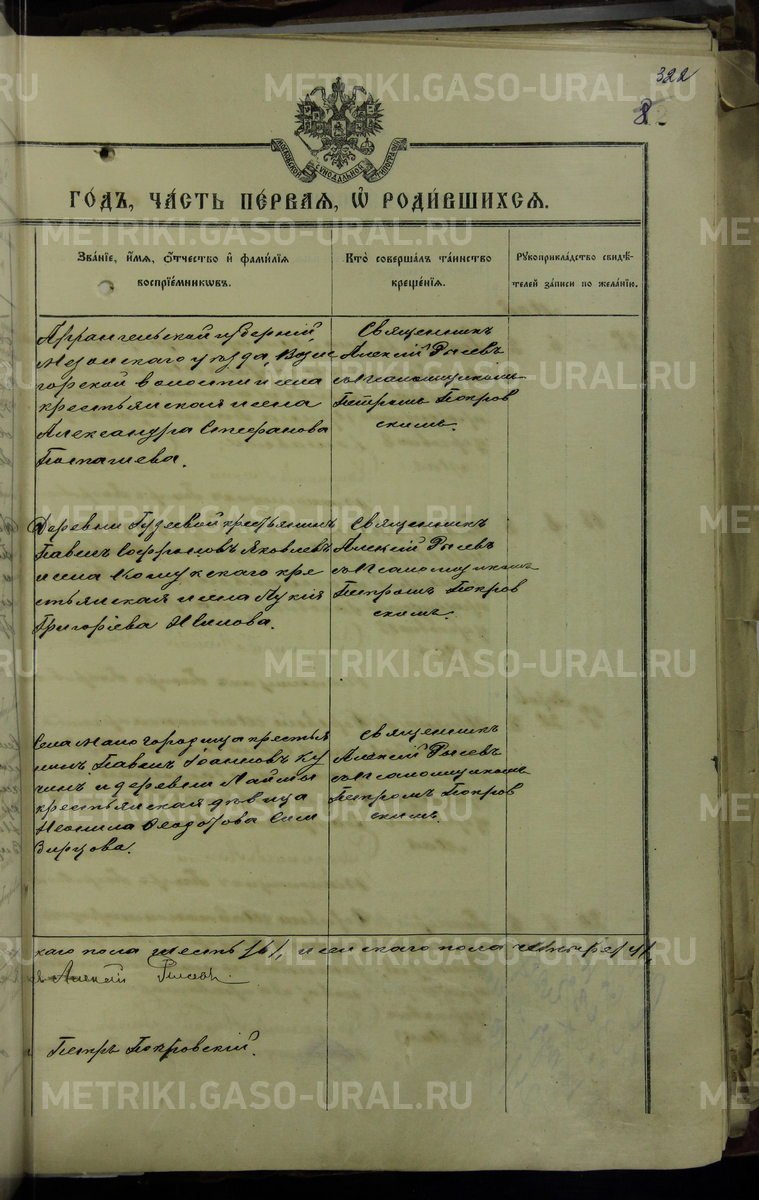 METRIKI.GASO-URAL.RU
322
8
МОСКОВСКОЙ СѴНОДАЛЬНОЙ ТИПОГРАФІИ
ГО́ДЪ, ЧА́СТЬ ПЕ́РВАЯ, Ѿ РОДИ́ВШИХСЯ.
Зва́ніе, и҆́мя, о҆́тчество и҆ фами́лія воспріе́мниковъ.
Кто̀ соверша́лъ та́инство креще́нія.
Рꙋкоприкла́дство свидѣ́телей за́писи по жела́нію.
Архангельской губерніи,
Мезенскаго уѣзда, Возне
горской волости и села
крестьянская жена
Александра Стефанова
Поташева.
Священникъ
Алексій Рысевъ
съ псаломщикомъ
Петромъ Покров
скимъ.
Деревни Гудеевой крестьянинъ
Павелъ Софроновъ Яковлевъ
и села Комукскаго кре
стьянская жена Лукія
Григоріева Ивлова.
Священникъ
Алексій Рысевъ
съ псаломщикомъ
Петромъ Покров
скимъ.
Села Малогородища крестья
нинъ Павелъ Іоанновъ Ку
чинъ и деревни Лаймы
крестьянская дѣвица
Неонила Ѳеодотова Сим
бирцова.
Священникъ
Алексій Рысевъ
съ псаломщикомъ
Петромъ Покров
скимъ.
каго пола шесть /6/, женскаго пола четыре /4/,
Алексій Рысевъ.
Петръ Покровскій.